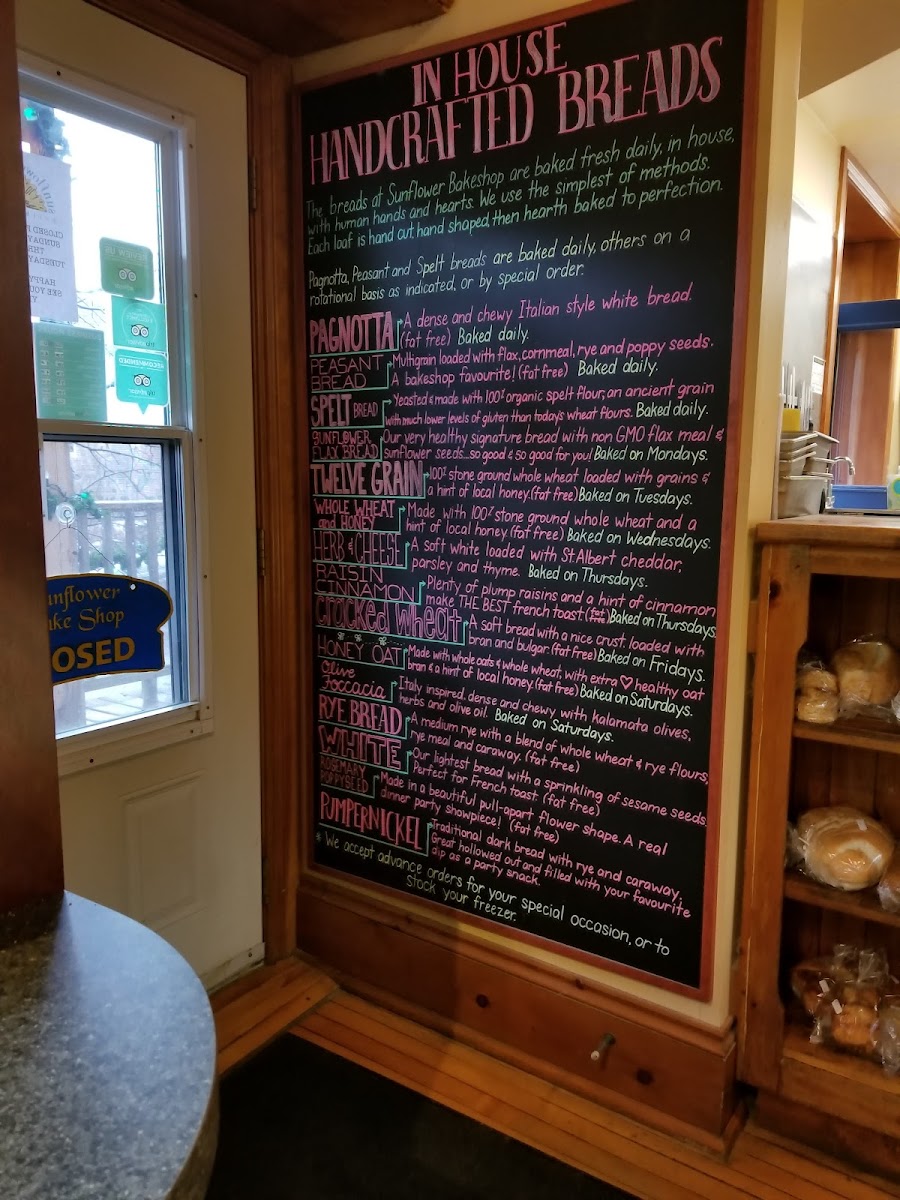 IN HOUSE
HANDCRAFTED BREADS
The breads at Sunflower Bakeshop are baked fresh daily, in house,
with human hands and hearts. We use the simplest of methods.
Each loaf is hand cut, hand shaped, then hearth baked to perfection.
Pagnotta, Peasant and Spelt breads are baked daily, others on a
rotational basis as indicated, or by special order.
PAGNOTTA
A dense and chewy Italian style white bread.
(fat free) Baked daily.
PEASANT
BREAD
Multigrain loaded with flax, cornmeal, rye and poppy seeds.
A bakeshop favourite! (fat free) Baked daily.
SPELT BREAD
Yeasted & made with 100% organic spelt flour, an ancient grain
with much lower levels of gluten than todays wheat flours. Baked daily.
SUNFLOWER
FLAX BREAD
Our very healthy signature bread with non GMO flax meal &
sunflower seeds...so good & so good for you! Baked on Mondays.
TWELVE GRAIN
100% stone ground whole wheat loaded with grains &
a hint of local honey. (fat free) Baked on Tuesdays.
WHOLE WHEAT
and HONEY
Made with 100% stone ground whole wheat and a
hint of local honey (fat free) Baked on Wednesdays.
HERB & CHEESE
A soft white loaded with St.Albert cheddar,
parsley and thyme. Baked on Thursdays.
RAISIN
CINNAMON
Plenty of plump raisins and a hint of cinnamon
make THE BEST french toast. (fat free) Baked on Thursdays.
Cracked Wheat
A soft bread with a nice crust, loaded with
bran and bulgar. (fat free) Baked on Fridays.
HONEY OAT
Made with whole oats & whole wheat, with extra ♡ healthy oat
bran & a hint of local honey. (fat free) Baked on Saturdays.
Olive
Foccacia
Italy inspired, dense and chewy with kalamata olives,
herbs and olive oil. Baked on Saturdays.
RYE BREAD
A medium rye with a blend of whole wheat & rye flours,
rye meal and caraway. (fat free)
WHITE
Our lightest bread with a sprinkling of sesame seeds.
Perfect for French toast. (fat free)
ROSEMARY
POPPYSEED
Made in a beautiful pull-apart flower shape. A real
dinner party showpiece! (fat free)
PUMPERNICKEL
Traditional dark bread with rye and caraway.
Great hollowed out and filled with your favourite
dip as a party snack.
* We accept advance orders for your special occasion, or to
stock your freezer.
unflower
ake Shop
OSED
CLOSED
SUNDAY
TUESDAY
HAPPY
SEE YOU
REVIEW US
RECOMMENDED